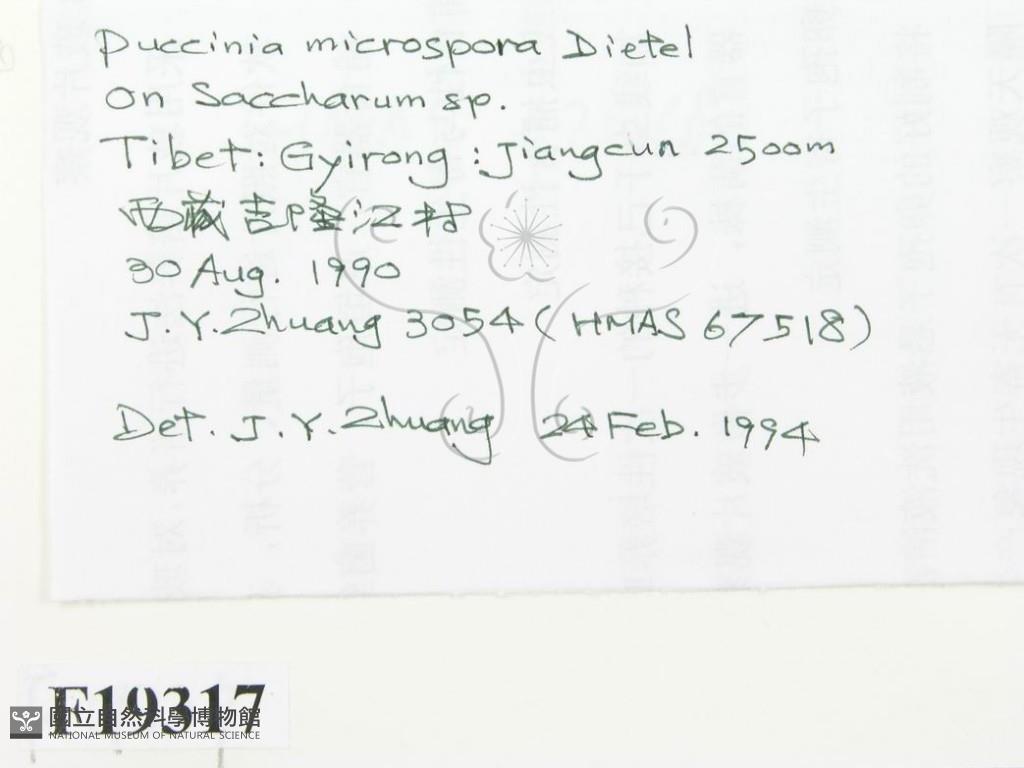 Puccinia microspora Dietel
on Saccharum sp.
Tibet: Gyirong: Jiangcun 2500m
西藏吉隆江村
30 Aug. 1990
J.Y.Zhuang 3054 (HMAS 67518)
Det. J.Y.Zhuang 24 Feb. 1994
F19317
國立自然科學博物館
NATIONAL MUSEUM OF NATURAL SCIENCE